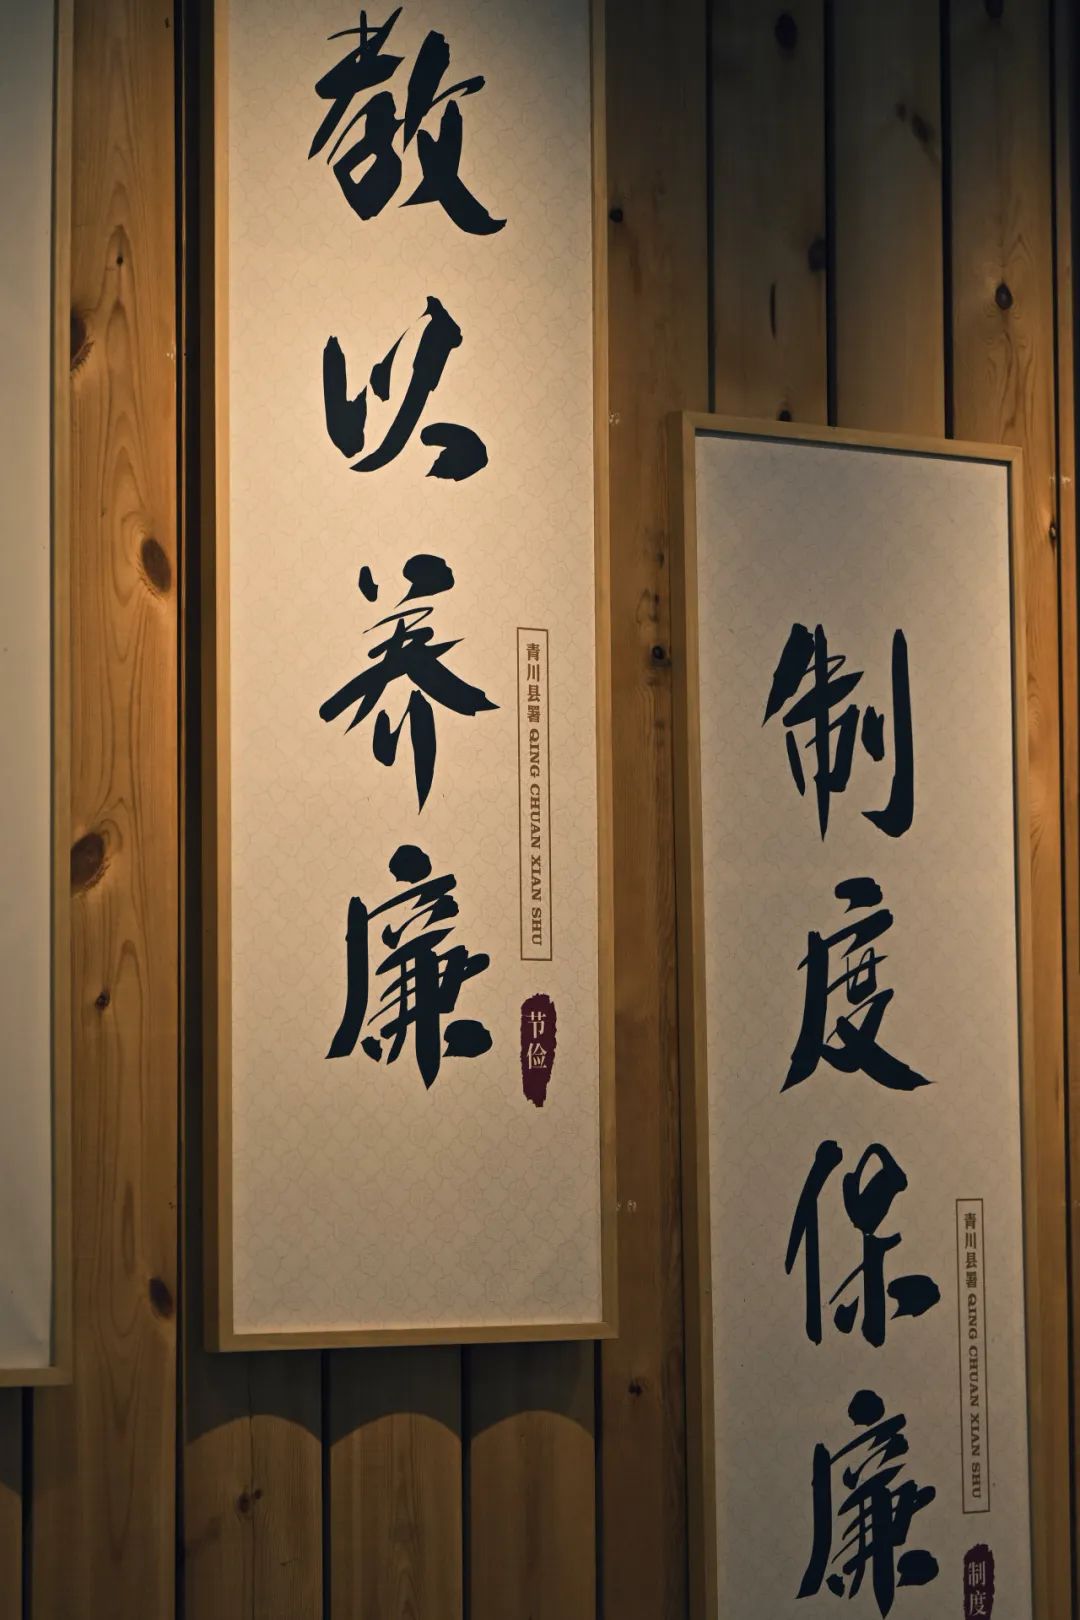 教以养廉
青川县署 QING CHUAN XIAN SHU
节俭
制度保廉
青川县署 QING CHUAN XIAN SHU
制度